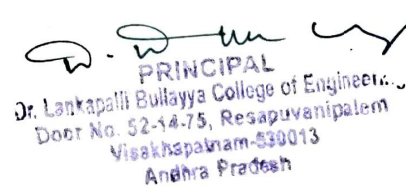 PRINCIPAL
Dr. Lankapalli Bullayya College of Engineer...
Door No. 52-14-75, Resapuvanipalem
Visakhapatnam-530013
Andhra Pradesh